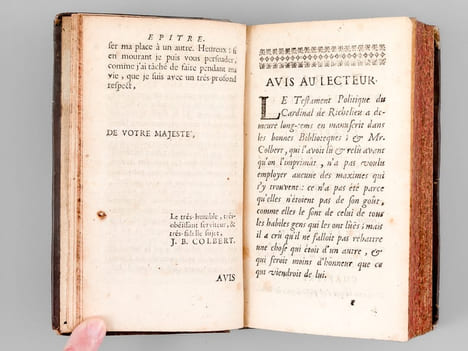 EPITRE.
ser ma place à un autre. Heureux; si
en mourant je puis vous persuader,
comme j'ai tâché de faire pendant ma
vie, que je suis avec un trés-profond
respect,
DE VOTRE MAJESTE',
Le trés-humble, trés-
obéïssant serviteur, &
trés-fidelle sujet,
J. B. COLBERT.
AVIS
AVIS AU LECTEUR.
LE Testament Politique du
Cardinal de Richelieu a de-
meuré long-tems en manuscrit dans
les bonnes Biblioteques; & Mr.
Colbert, qui l'avoit lû & relû avant
qu'on l'imprimât, n'a pas voulu
employer aucune des maximes qui
s'y trouvent: ce n'a pas été parce
qu'elles n'étoient pas de son goût,
comme elles le sont de celui de tous
les habiles gens qui les ont lûës; mais
il a crû qu'il ne falloit pas rebattre
une chose qui étoit d'un autre, &
qui feroit moins d'honneur que ce
qui viendroit de lui.